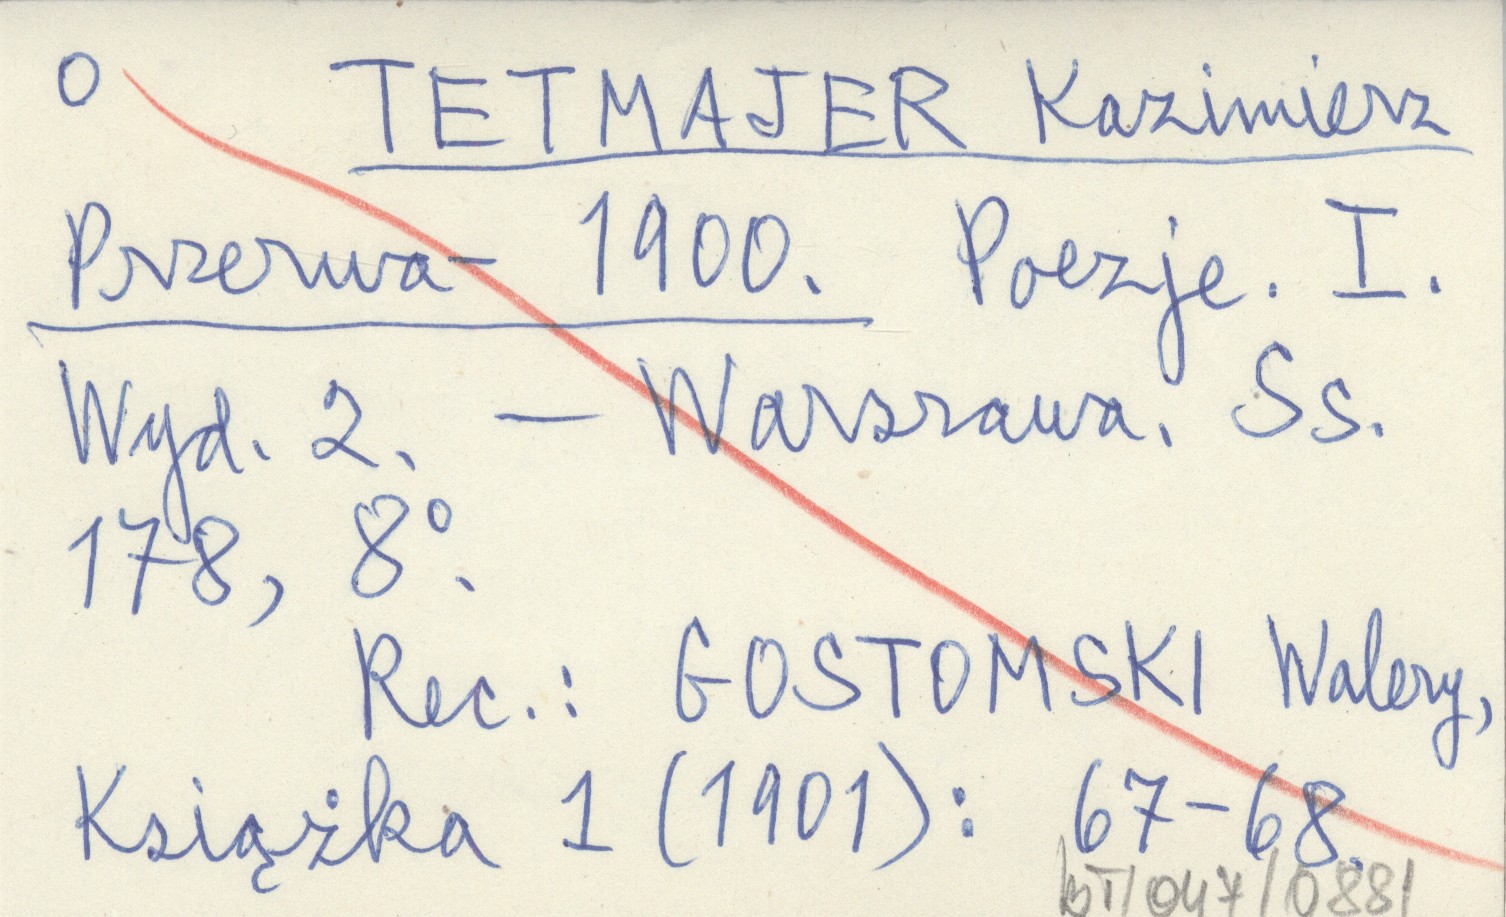 O TETMAJER Kazimierz
Przerwa- 1900. Poezje. I.
Wyd. 2. — Warszawa. Ss.
178, 8°.
Rec.: GOSTOMSKI Walery,
Książka 1 (1901): 67-68.
BT/047/0881